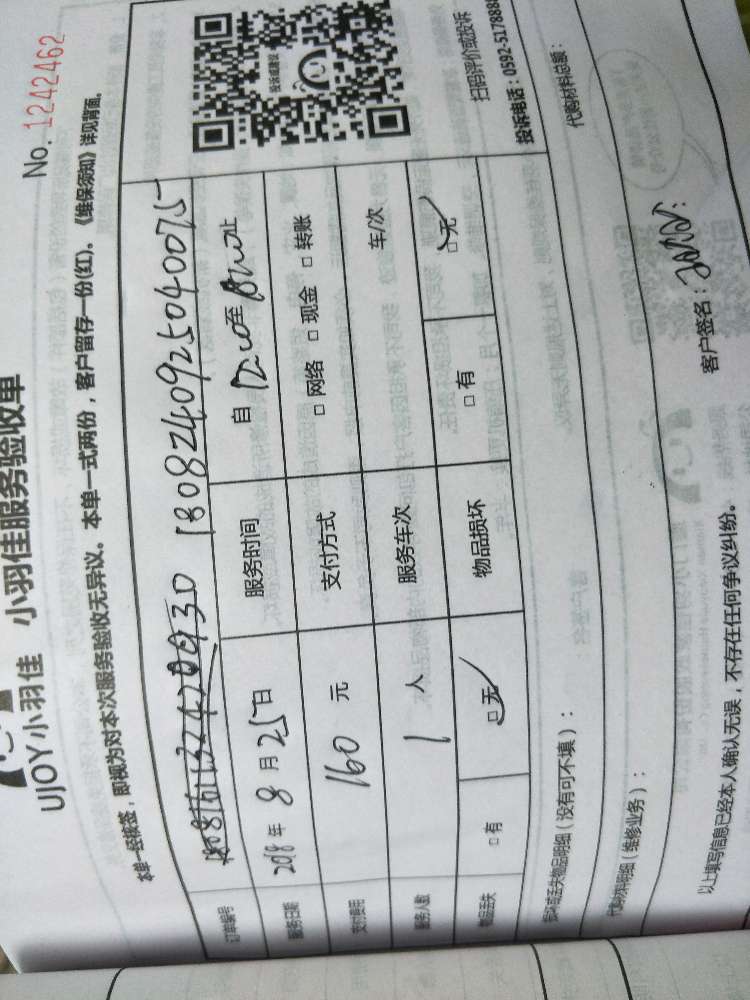 No. 1242462
UJOY小羽佳 小羽佳服务验收单
本单一经接签，即视为对本次服务验收无异议。本单一式两份，客户留存一份(红)。《维保须知》详见背面。
订单编号 1808240925040075
服务日期 2018年 8月 25日 服务时间 自 至
支付费用 160 元 支付方式 □网络 □现金 □转账
服务人数 1 人 服务车次 车/次
物品丢失 □有 □无 物品损坏 □有 □无
投诉或建议
扫码评价或投诉
投诉电话：0592-5178888
损坏或丢失物品明细（没有可不填）：
代购材料明细（维修业务）： 代购材料总额：
以上填写信息已经本人确认无误，不存在任何争议纠纷。 客户签名：